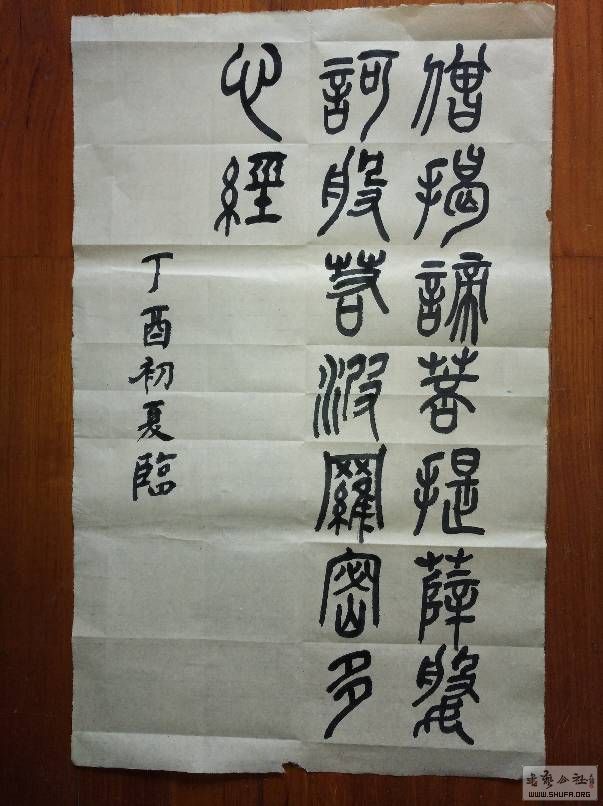 僧揭諦菩提薩婆
訶般若波羅密多
心經
丁酉初夏臨
书艺公社
WWW.SHUFA.ORG